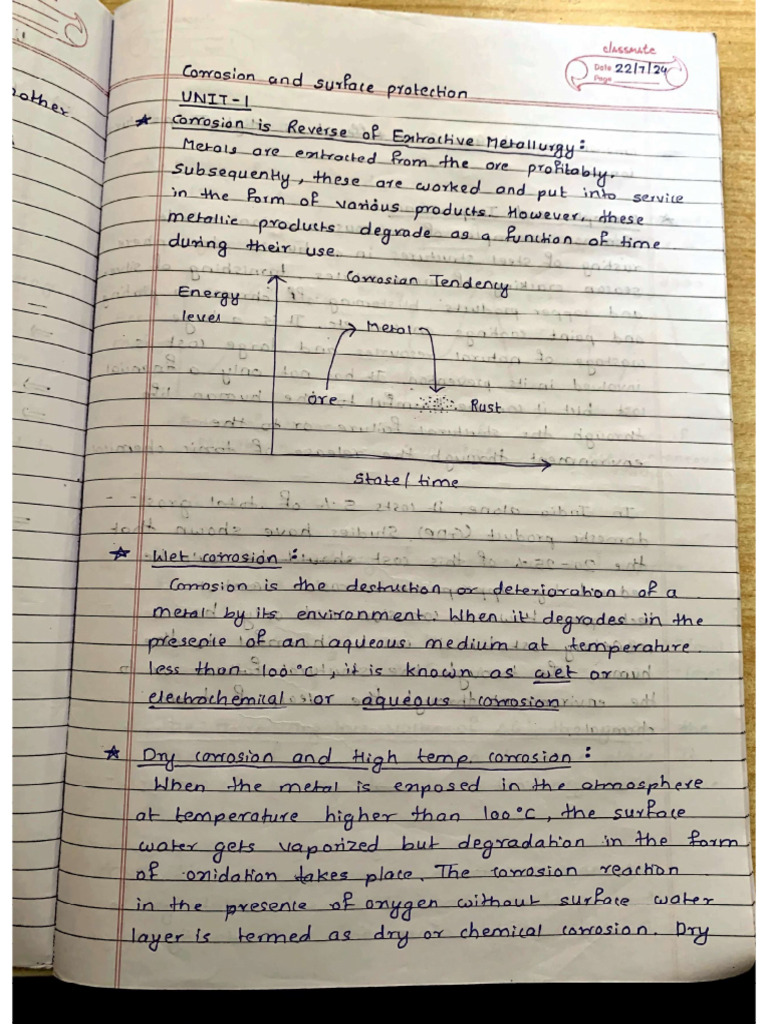 other
classmate
Date 22/7/24
Page
Corrosion and surface protection
UNIT-1
* Corrosion is Reverse of Extractive Metallurgy:
Metals are extracted from the ore profitably.
Subsequently, these are worked and put into service
in the form of various products. However, these
metallic products degrade as a function of time
during their use.
Corrosian Tendency
Energy
level
Metal
Ore
Rust
State/time
* Wet corrosion:
Corrosion is the destruction or deterioration of a
metal by its environment. When it degrades in the
presence of an aqueous medium at temperature
less than 100°C, it is known as wet or
electrochemical or aqueous corrosion
* Dry corrosion and High temp. corrosion:
When the metal is exposed in the atmosphere
at temperature higher than 100°C, the surface
water gets vaporized but degradation in the form
of oxidation takes place. The corrosion reaction
in the presence of oxygen without surface water
layer is termed as dry or chemical corrosion. Dry